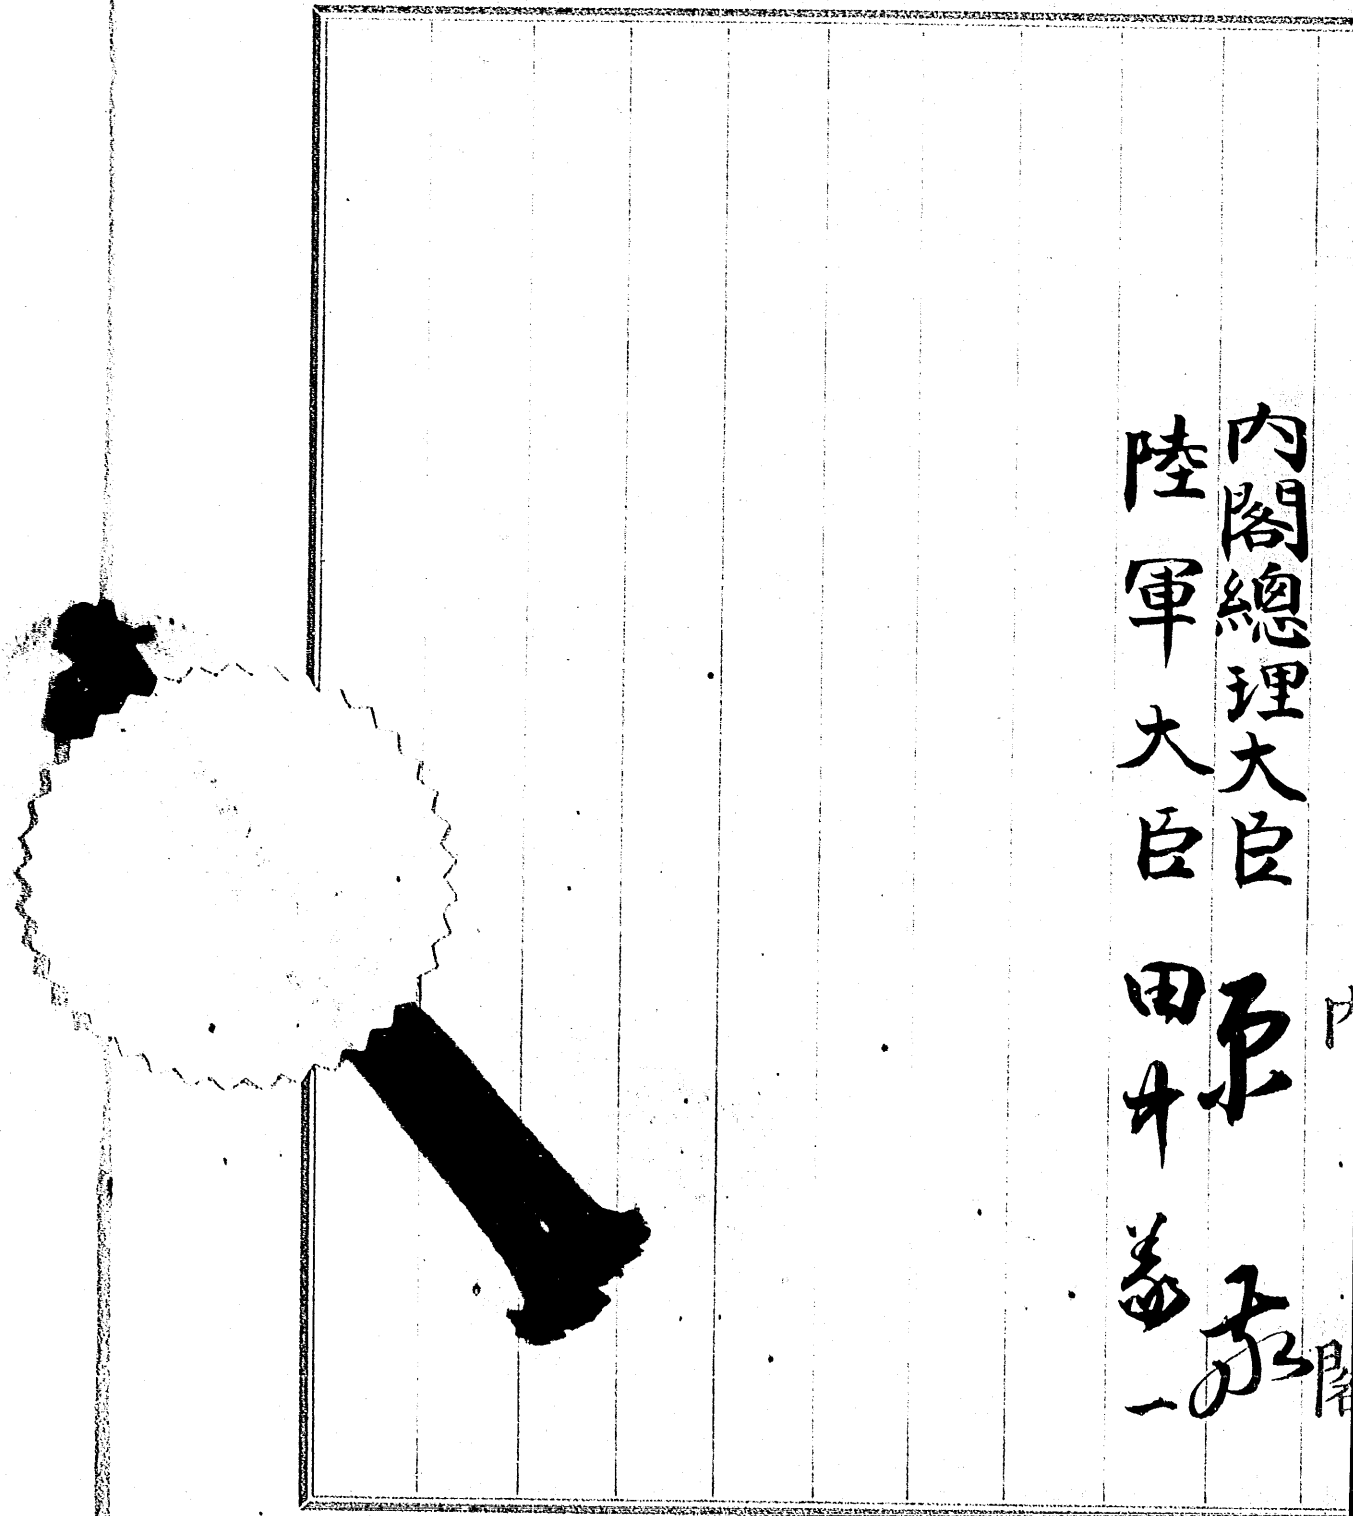 内閣
内閣總理大臣 原敬
陸軍大臣 田中義一